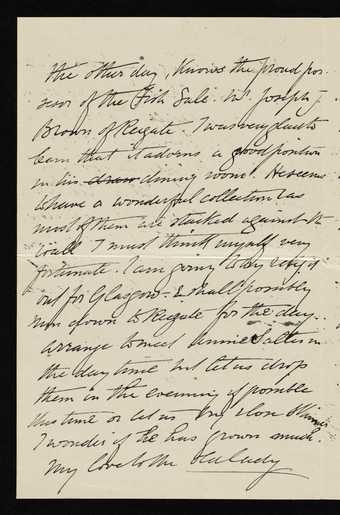 the other day, Knows the proud pos-
sesor of the Fish Sale. Mr. Joseph J
Brown of Reigate. I was very glad to
learn that it adorns a good position
in his draw dining room. He seems
to have a wonderful collection as
most of them are stacked against the
wall I must think myself very
fortunate. I am going to try
out for Glasgow - & shall possibly
run down to Reigate for the day.
arrange to meet Salter in
the day time but let us drop
them in the evening if possible
this time or let us
I wonder if he has grown much.
My love to the Old Lady